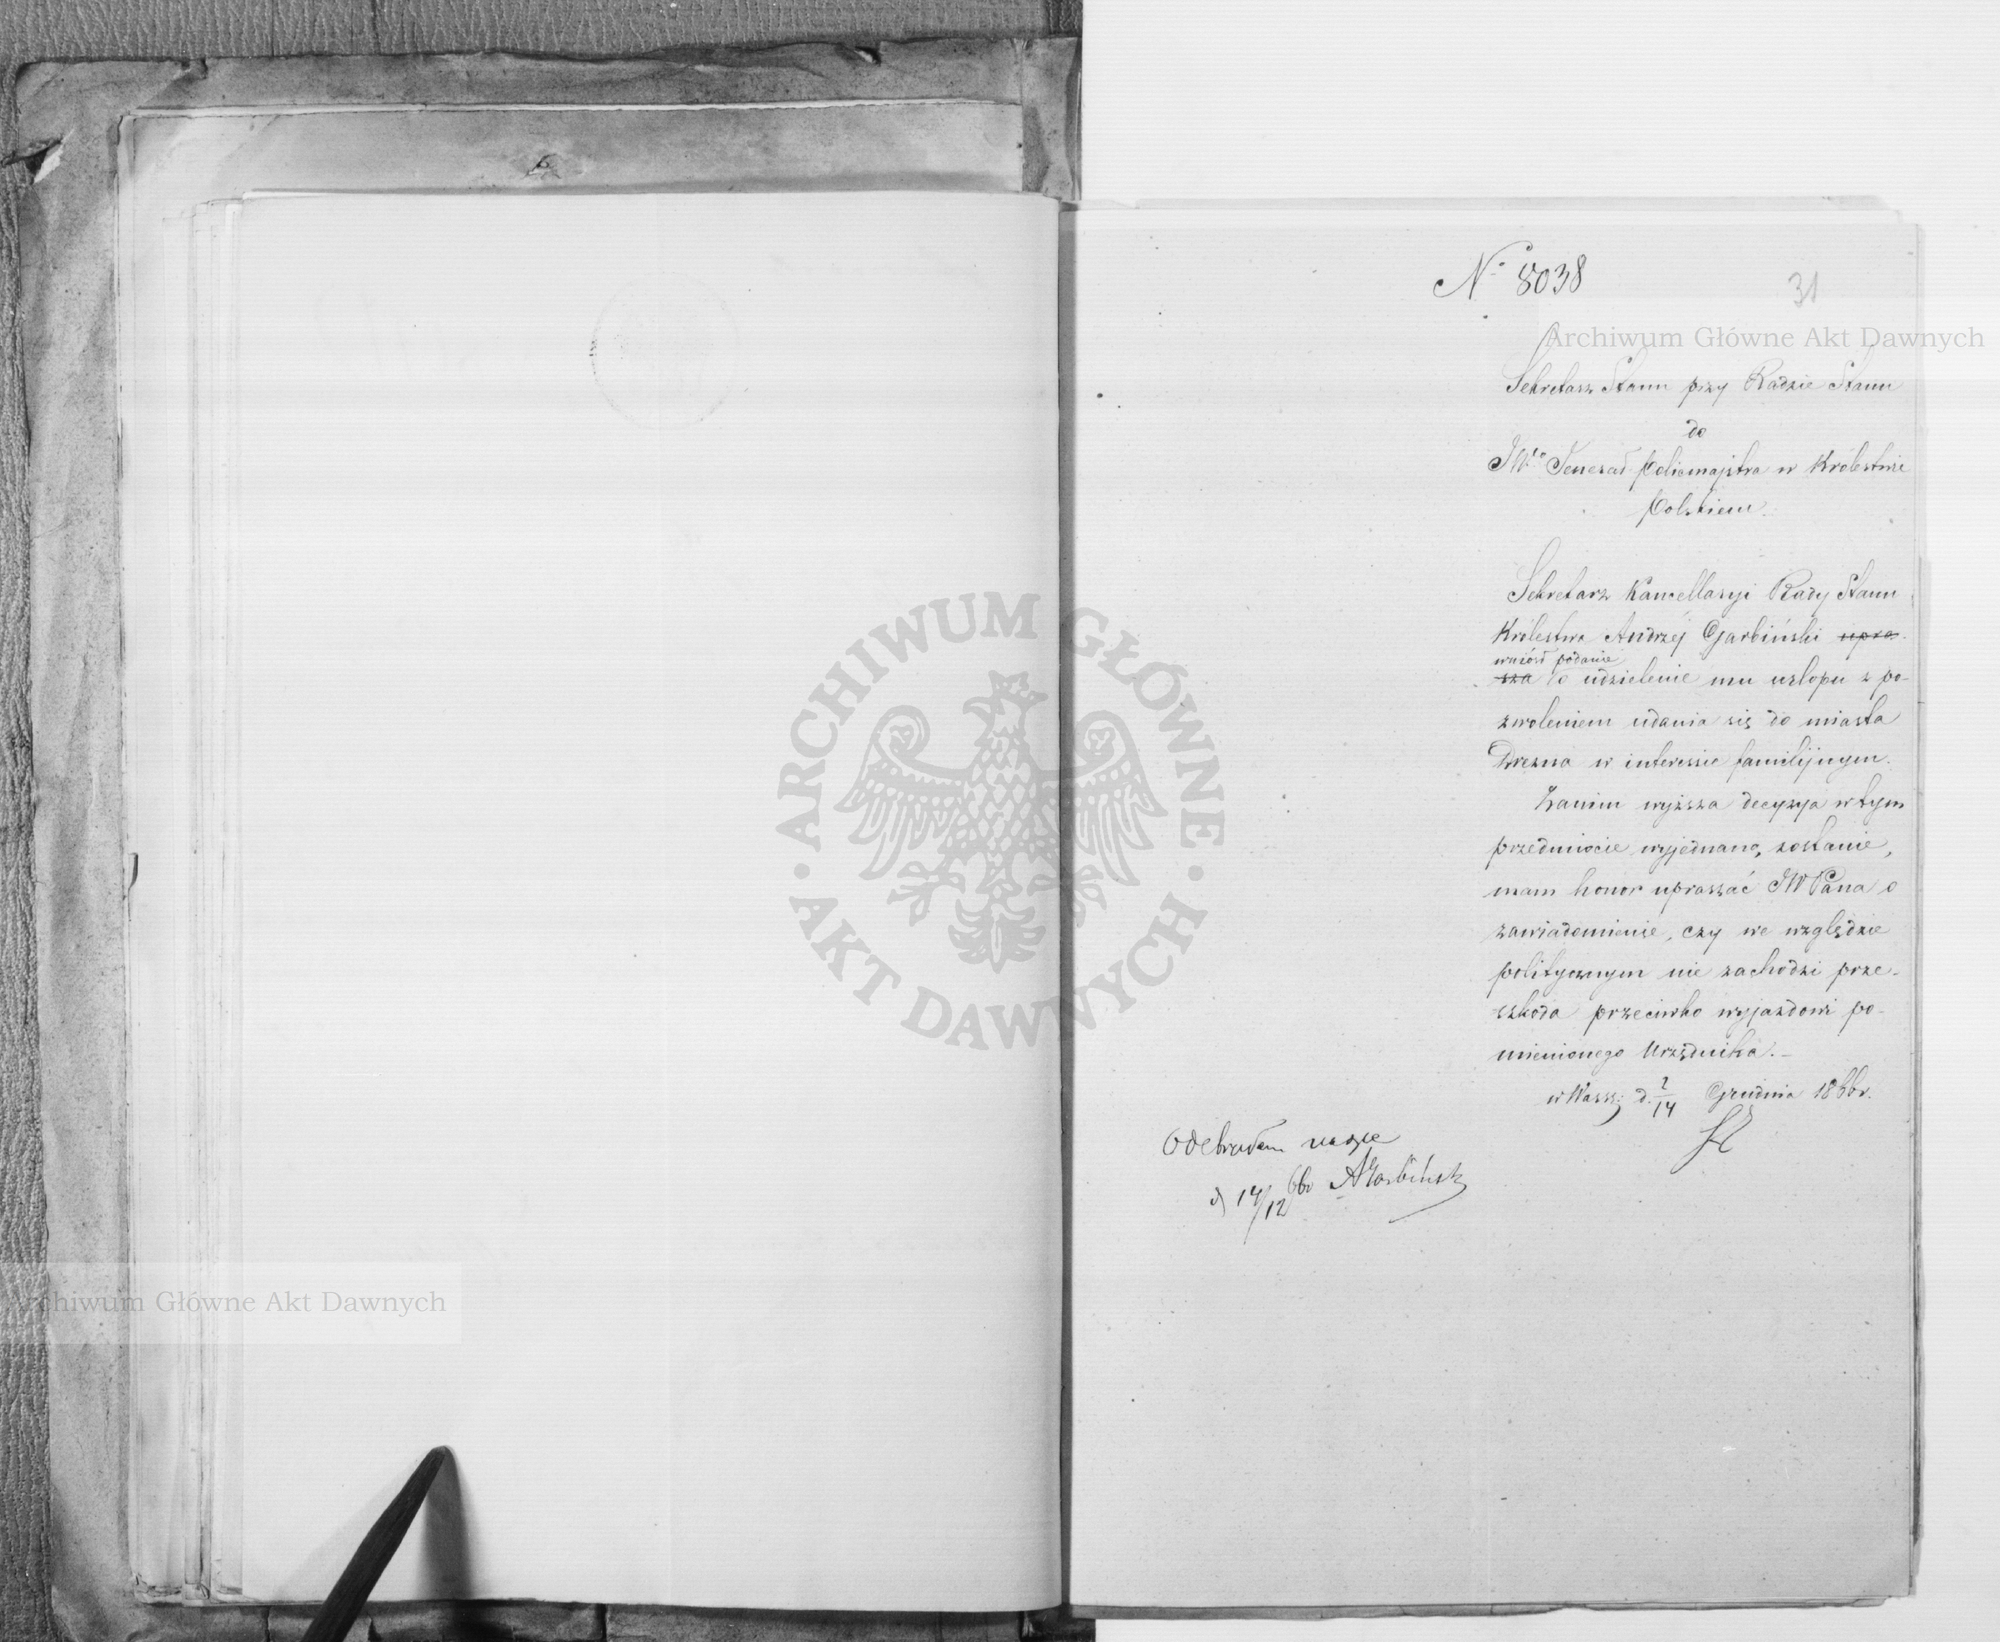 6
№ 8038
31
Archiwum Główne Akt Dawnych
Sekretarz Stanu przy Radzie Stanu
do
JWo Jenerał Policmajstra w Królestwie
Polskiem.
Sekretarz Kancellaryi Rady Stanu
Królestwa Andrzéj Garbiński upra-
wniósł podanie
sza o udzielenie mu urlopu z po-
zwoleniem udania się do miasta
Drezna w interessie familijnym.
Zanim wyższa decyzya w tym
przedmiocie wyjednaną zostanie,
mam honor upraszać JWPana o
zawiadomienie, czy we względzie
politycznym nie zachodzi prze-
szkoda przeciwko wyjazdowi po-
mienionego Urzędnika.
w Warsz: d. 2/14 Grudnia 1866r.
Odebrałem
d 14/12 66r AGarbiński
ARCHIWUM GŁÓWNE · AKT DAWNYCH ·
Archiwum Główne Akt Dawnych